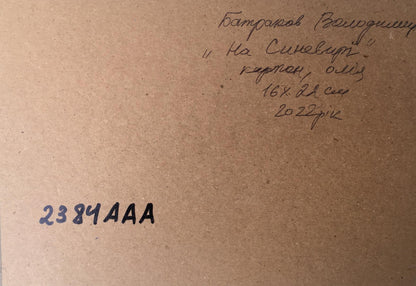 Батраков Володимир
„На Синевирі".
картон, олія
16 х 22 см
2022 рік
2384AAA